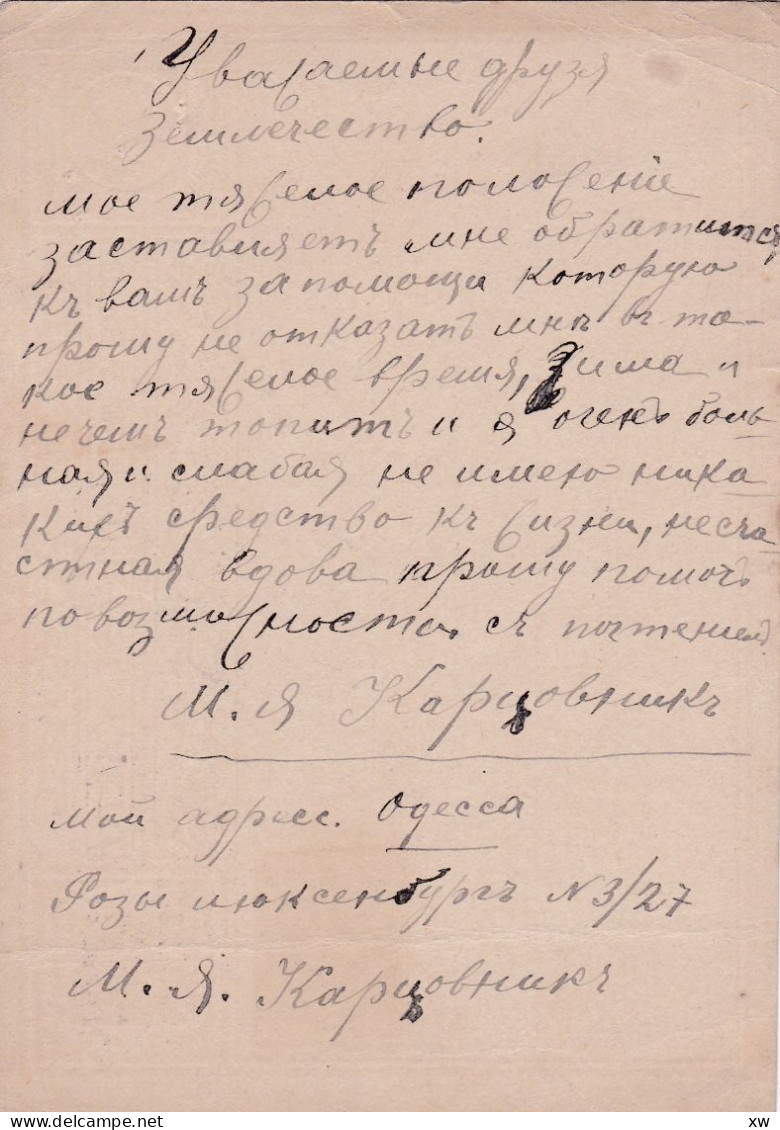 Уважаемые друзя
Землечество.
мое тяжелое положеніе
заставляетъ мне обратится
къ вамъ за помощи которую
прошу не отказатъ мнѣ въ та-
кое тяжелое время, Зима и
нечемъ топитъ и я оченъ боль
ная и слабая не имею ника
кихъ средство къ жизни, несча
стная вдова прошу помочъ
по возможности съ почтением
М. Я Карцовникъ
мой адресс. Одесса
Розы люксенбургъ N 3/27
М. Я. Карцовникъ
xw